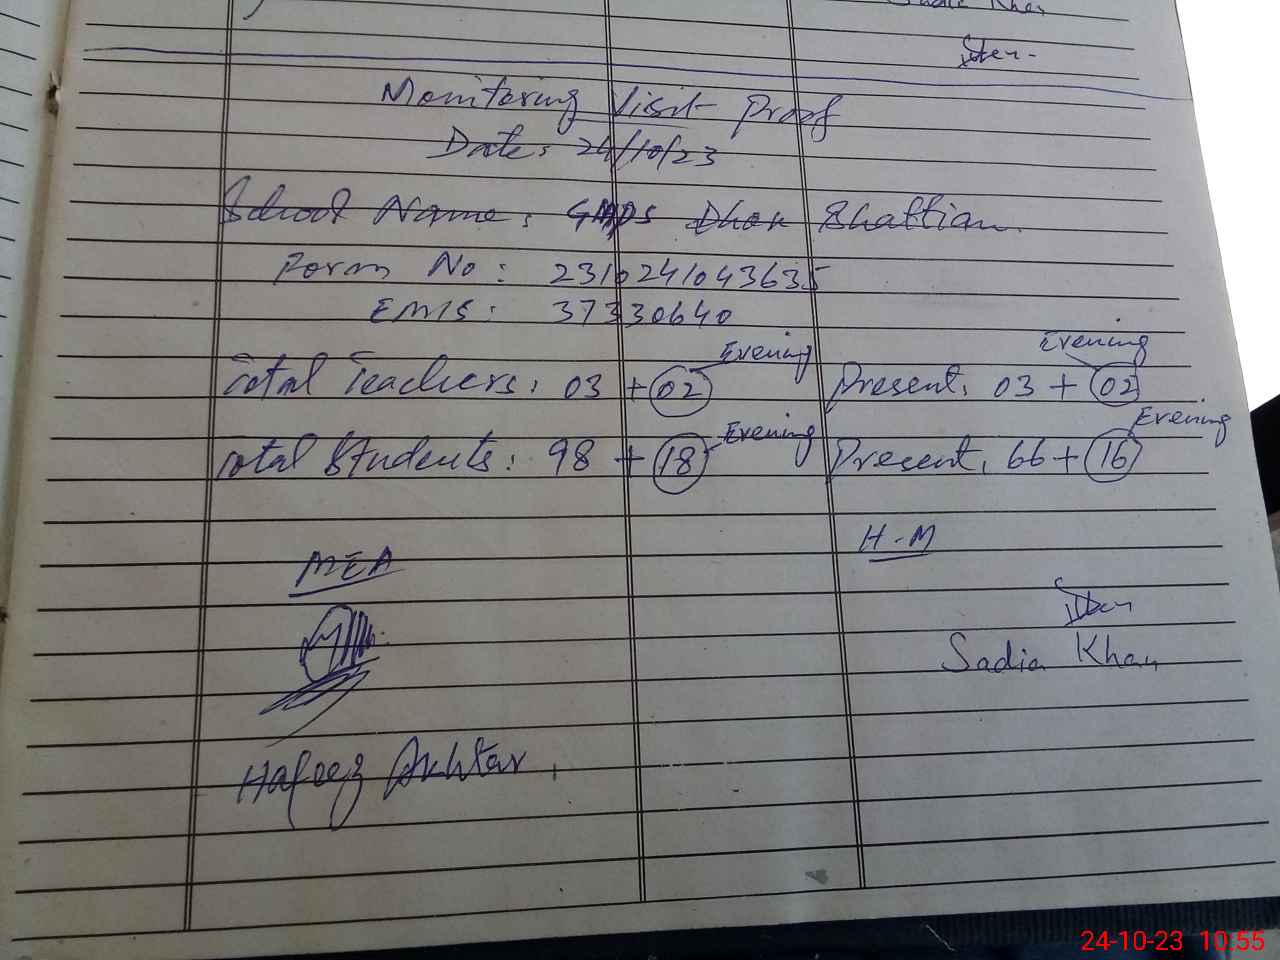 Sadia Khan
Monitoring Visit Proof
Date: 24/10/23
School Name: GMPS Dhok Bhattian.
Form No: 2310241043635
EMIS: 37330640
Evening Evening
Total Teachers: 03 + 02 Present. 03 + 02
Evening Evening
Total Students: 98 + 18 Present. 66 + 16
MEA H-M
Sadia Khan
Hafeez Akhtar.
24-10-23 10:55